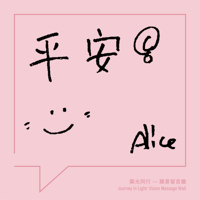 平安
Alice
榮光同行 － 願景留言牆
Journey in Light: Vision Message Wall